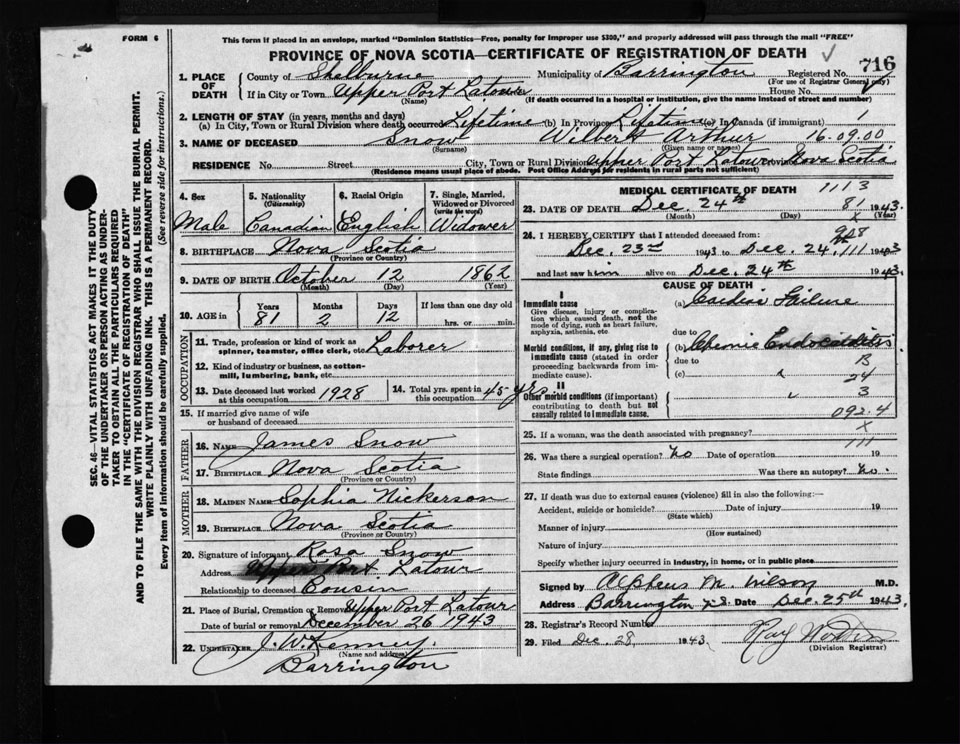 FORM 6
This form if placed in an envelope, marked "Dominion Statistics—Free, penalty for improper use $300," and properly addressed will pass through the mail "FREE"
PROVINCE OF NOVA SCOTIA—CERTIFICATE OF REGISTRATION OF DEATH
716
1. PLACE OF DEATH County of Shelburne Municipality of Barrington Registered No.
(For use of Registrar General only)
If in City or Town Upper Port Latour House No.
(Name) (If death occurred in a hospital or institution, give the name instead of street and number)
2. LENGTH OF STAY (in years, months and days)
(a) In City, Town or Rural Division where death occurred Lifetime (b) In Province Lifetime (c) In Canada (if immigrant) 1
3. NAME OF DECEASED Snow Wilbert Arthur 16.09.00
(Surname) (Given name or names)
RESIDENCE No. Street City, Town or Rural Division Upper Port Latour Province Nova Scotia
(Residence means usual place of abode. Post Office Address for residents in rural parts not sufficient)
4. Sex 5. Nationality (Citizenship) 6. Racial Origin 7. Single, Married, Widowed or Divorced (write the word)
Male Canadian English Widower
8. BIRTHPLACE Nova Scotia
(Province or Country)
9. DATE OF BIRTH October 12 1862
(Month) (Day) (Year)
10. AGE Years Months Days If less than one day old
81 2 12 hrs. or min.
OCCUPATION
11. Trade, profession or kind of work as spinner, teamster, office clerk, etc. Laborer
12. Kind of industry or business, as cotton-mill, lumbering, bank, etc.
13. Date deceased last worked at this occupation 1928 14. Total yrs. spent in this occupation 45 yrs
15. If married give name of wife or husband of deceased
FATHER
16. NAME James Snow
17. BIRTHPLACE Nova Scotia
(Province or Country)
MOTHER
18. MAIDEN NAME Sophia Nickerson
19. BIRTHPLACE Nova Scotia
(Province or Country)
20. Signature of informant Rosa Snow
Address Upper Port Latour
Relationship to deceased Cousin
21. Place of Burial, Cremation or Removal Upper Port Latour
Date of burial or removal December 26 1943
22. UNDERTAKER J. W. Kenney
(Name and address)
Barrington
MEDICAL CERTIFICATE OF DEATH 1113
23. DATE OF DEATH Dec. 24th 81 1943.
(Month) (Day) X (Year)
24. I HEREBY CERTIFY that I attended deceased from: 908
Dec. 23rd 1943 to Dec. 24, 111 1943
and last saw him alive on Dec. 24th 1943.
CAUSE OF DEATH
I
Immediate cause (a) Cardiac Failure
Give disease, injury or complication which caused death, not the mode of dying, such as heart failure, asphyxia, asthenia, etc.
due to
Morbid conditions, if any, giving rise to immediate cause (stated in order proceeding backwards from immediate cause). (b) Chronic Endocarditis.
due to B
(c) 24
II
Other morbid conditions (if important) contributing to death but not causally related to immediate cause. 3
092.4
25. If a woman, was the death associated with pregnancy? X
111
26. Was there a surgical operation? no Date of operation 19
State findings Was there an autopsy? no.
27. If death was due to external causes (violence) fill in also the following:—
Accident, suicide or homicide? Date of injury 19
(State which)
Manner of injury
(How sustained)
Nature of injury
Specify whether injury occurred in industry, in home, or in public place
Signed by Alpheus M. Wilson M.D.
Address Barrington N.S. Date Dec. 25th 1943.
28. Registrar's Record Number
29. Filed Dec. 28, 1943.
(Division Registrar)
SEC. 46—VITAL STATISTICS ACT MAKES IT THE DUTY
OF THE UNDERTAKER OR PERSON ACTING AS UNDER-
TAKER TO OBTAIN ALL THE PARTICULARS REQUIRED
IN THE "CERTIFICATE OF REGISTRATION OF DEATH"
AND TO FILE THE SAME WITH THE DIVISION REGISTRAR WHO SHALL ISSUE THE BURIAL PERMIT.
WRITE PLAINLY WITH UNFADING INK. THIS IS A PERMANENT RECORD.
Every item of information should be carefully supplied. (See reverse side for instructions.)